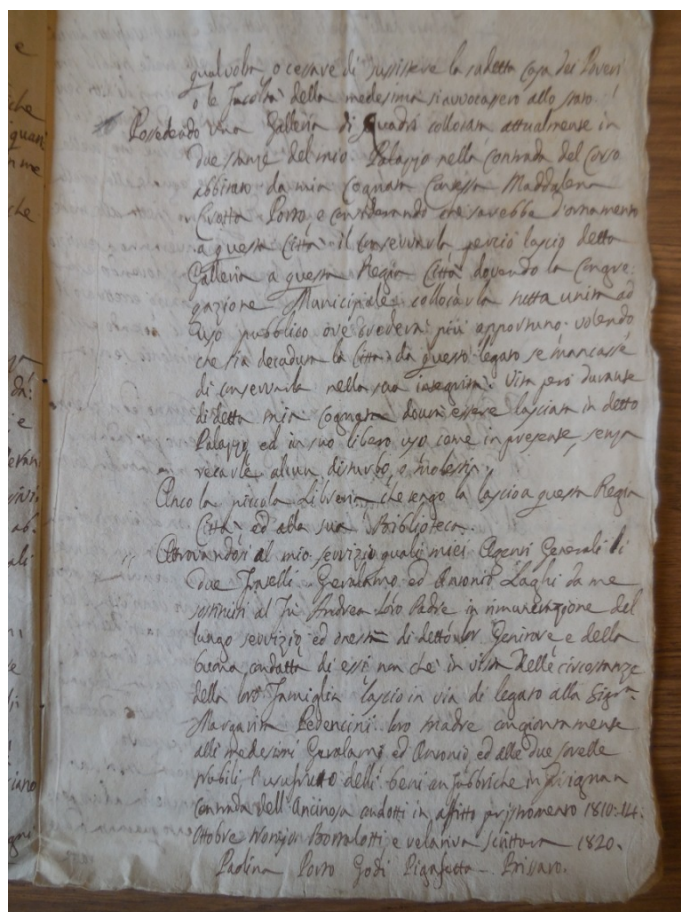 qualvolta, o cessare di sussistere la sadetta Casa dei Poveri
o le Facoltà della medesima si avvocassero allo stato.
Possedendo una Galleria di Quadri collocata attualmente in
due stanze del mio Palazzo nella Contrada del Corso
abbitato da mia Cognata Contessa Maddalena
Trotta Porto, e considerando che sarebbe d'ornamento
a questa Città il conservarla perciò lascio detta
Galleria a questa Regia Città dovendo la Congre-
gazione Municipale collocarla tutta unita ad
uso pubblico ove crederà più opportuno volendo
che sia decaduta la Città da questo legato se mancasse
di conservarla nella sua integrità. Vita però durante
di detta mia Cognata dovrà essere lasciata in detto
Palazzo, ed in suo libero uso come in presente, senza
recarle alcun disturbo, o molestia.
Anco la piccola Libreria che tengo la lascio a questa Regia
Città ed alla sua Biblioteca.
Attrovandosi al mio servizio quali miei Agenti Generali li
due Fratelli Gerolamo ed Antonio Laghi da me
sostituiti al fu Andrea loro Padre in rimunerazione del
lungo servizio, ed onestà di detto lor Genitore e della
buona condotta di essi non che in vista delle circostanze
della loro Famiglia lascio in via di legato alla Sigra
Margarita Pedencini loro madre congiontamente
alli medesimi Gerolamo ed Antonio, ed alle due sorelle
Nobili, l'usufrutto delli beni con fabbriche in
contrada dell' condotti in affitto pristromento 1810-14.
Ottobre Bortolotti, e relativa scrittura 1820.
Paolina Porto Godi Pigafetta - Bissaro.